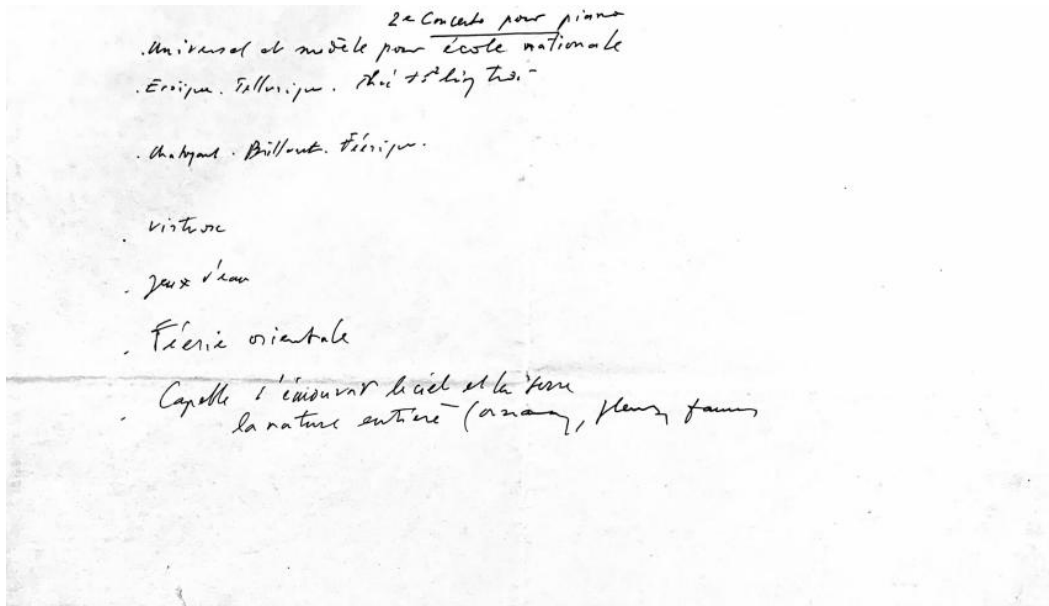 2e Concerto pour piano
. Universel et modèle pour école nationale
. Eroïque. Tellurique.
. Chatoyant. Brillant. Féérique.
. virtuose
. jeux d'eau
. Féerie orientale
. Capable d'émouvoir le ciel et la terre
la nature entière (oiseaux, fleurs,